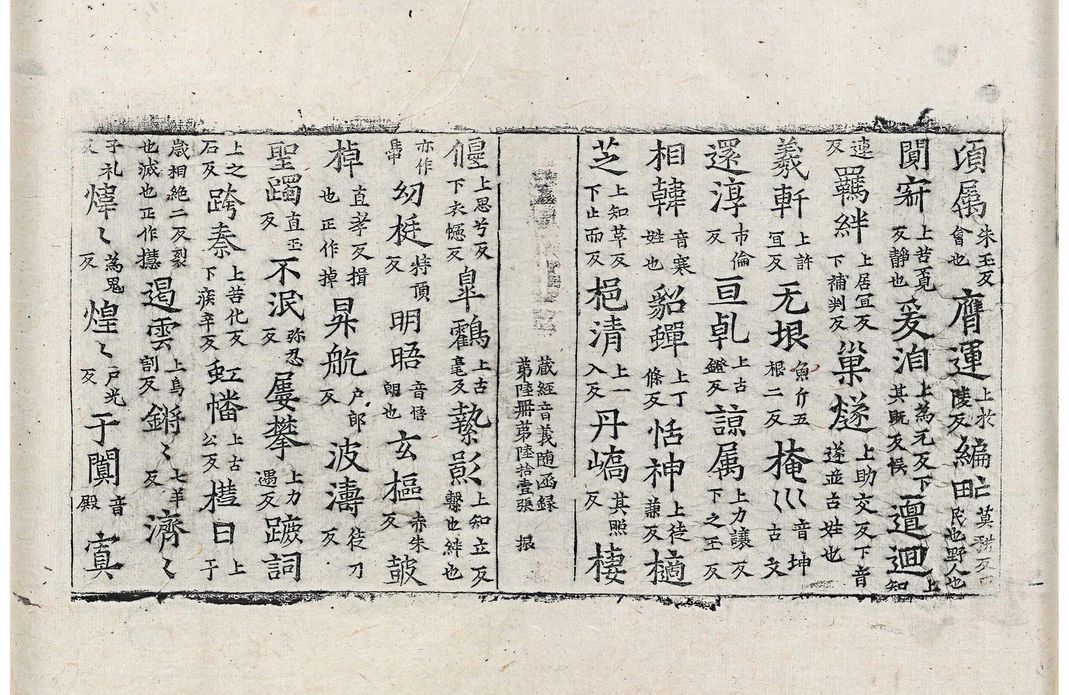 頃属朱玉反會也膺運上於陵反編甿莫耕反民也野人也
闃寂上苦覔反静也爰洎上為元反下其既反候邅迴上知
連反羈絆上居宜反下補判反巢燧上助交反下音遂並古姓也
羲軒上許宜反无垠魚斤五根二反掩巛音坤古文
還淳市倫反亘乹上古鐙反諒属上力讓反下之玉反
相韓音寒姓也貂蟬上丁條反恬神上徒兼反樀
芝上知草反下止而反挹清上一入反丹嶠其照反棲
藏經音義随函録
第陸册第陸拾壹張 振
僊上思兮反下衣㥯反皐鸖上古毫反縶影上知立反繫也絆也
亦作馽幼梃特頂反明晤音悟朗也玄樞赤朱反皷
棹直孝反揖也正作掉昇航户郎反波濤徒刀反
聖躅直玉反不泯弥忍反屡攀上力遇反蹠詞
上之石反跨秦上苦化反下疾辛反虹幡上古公反樻日上于
歳相絶二反裂也滅也正作㩦遏雲上烏割反鏘〻七羊反濟〻
子礼反煒〻為鬼反煌〻户光反于闐音殿寘